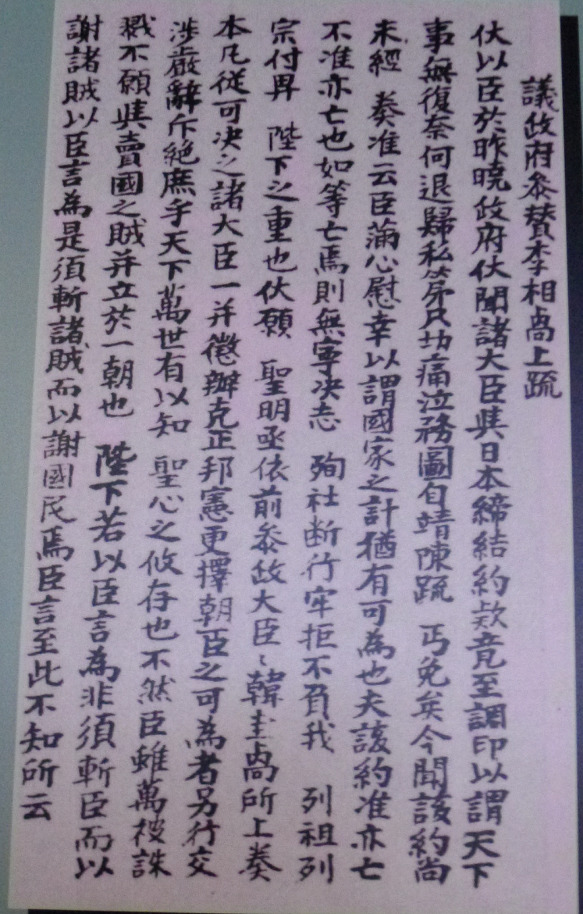 議政府參贊李相卨上疏
伏以臣於昨曉政府伏聞諸大臣與日本締結約款竟至調印以謂天下
事無復奈何退歸私第只切痛泣務圖自靖陳疏 丐免矣今聞該約尚
未經 奏准云臣滿心慰幸以謂國家之計猶有可為也夫該約准亦亡
不准亦亡也如等亡焉則無寧决志 殉社断行牢拒不負我 列祖列
宗付畀 陛下之重也伏願 聖明亟依前叅政大臣〻韓圭卨所上奏
本凡從可决之諸大臣一并懲辦克正邦憲更擇朝臣之可為者另行交
涉嚴辭斥絶庶乎天下萬世有以知 聖心之攸存也不然臣雖萬被誅
戮不願與賣國之賊并立於一朝也 陛下若以臣言為非須斬臣而以
謝諸賊以臣言為是須斬諸賊而以謝國民焉臣言至此不知所云